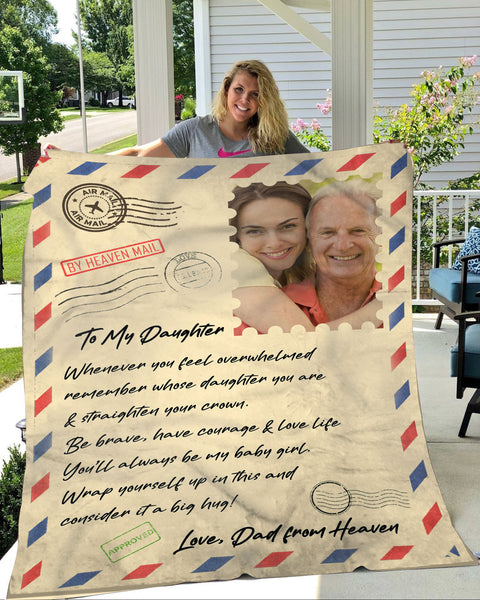 AIR MAIL
AIR MAIL
BY HEAVEN MAIL
LOVE
To My Daughter
Whenever you feel overwhelmed
remember whose daughter you are
& straighten your crown.
Be brave, have courage & love life
You'll always be my baby girl.
Wrap yourself up in this and
consider it a big hug!
APPROVED
Love, Dad from Heaven